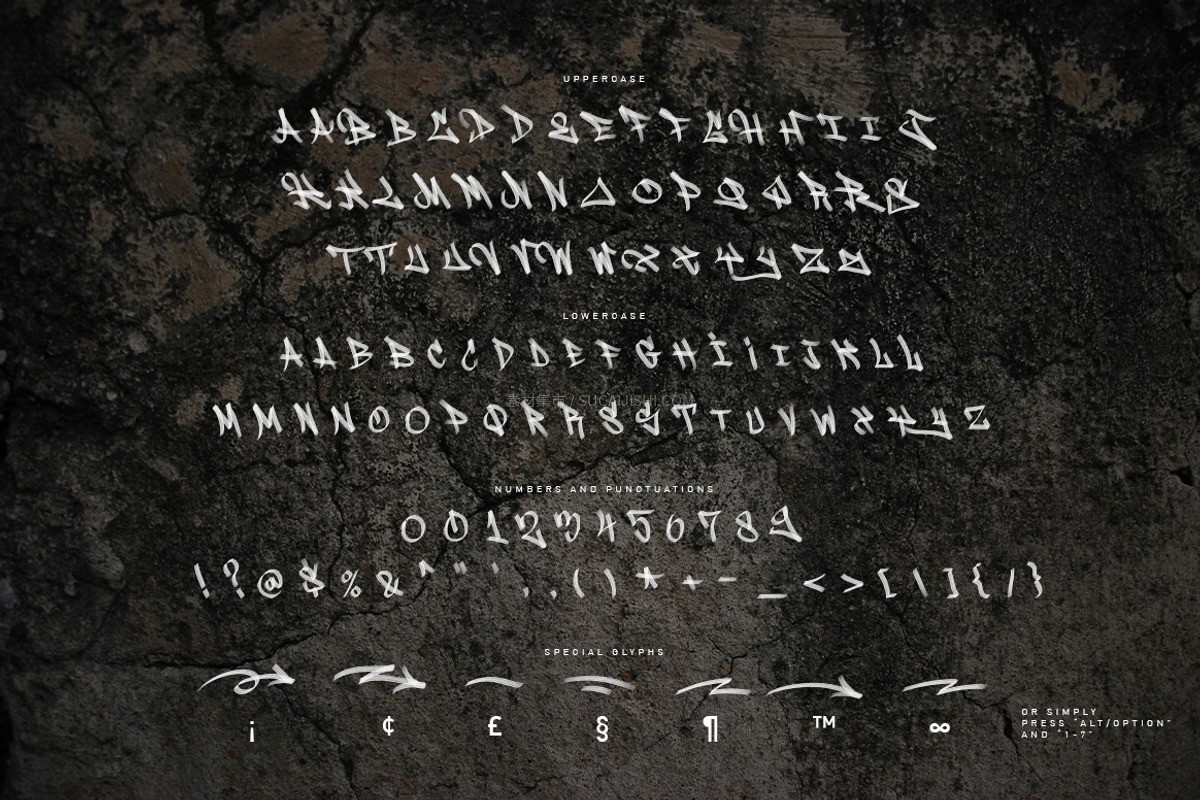 UPPERCASE
A A B B C D D E E F F G H H I I J
K K L M M N N O O P Q Q R R S
T T U U V V W W X X Y Y Z Z
LOWERCASE
A A B B C C D D E F G H I i I J K L L
M M N N O O P Q R R S S T T U V W X X Y Z
素材集市 / SUCAIJISHI.COM
NUMBERS AND PUNCTUATIONS
0 0 1 2 3 4 5 6 7 8 9
! ? @ $ % & ^ " ' , . ( ) * + - _ < > [ \ ] { / }
SPECIAL GLYPHS
¡ ¢ £ § ¶ ™ ∞
OR SIMPLY
PRESS "ALT/OPTION"
AND "1-7"